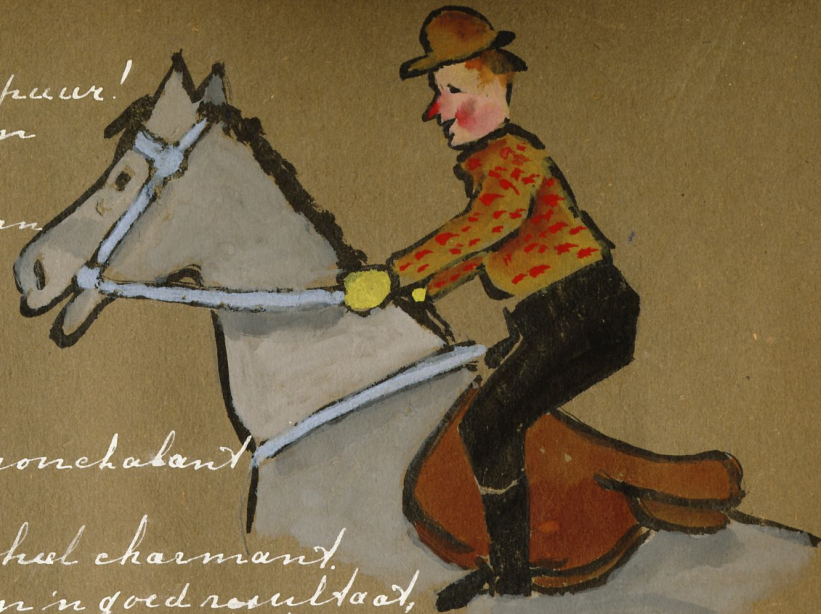 puur!
n
an
nonchalant
heel charmant.
n 'n goed resultaat,